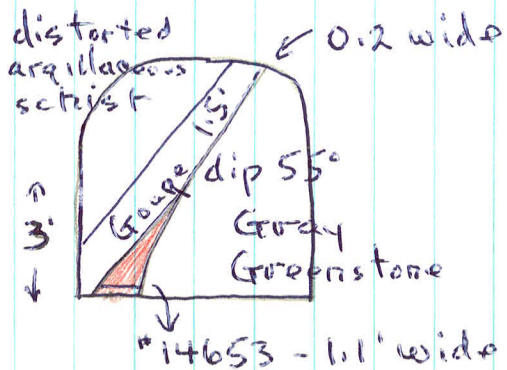 distorted
argillaceous
schist
0.2 wide
1.5'
Gouge
dip 55°
3'
Gray
Greenstone
#14653 - 1.1' wide